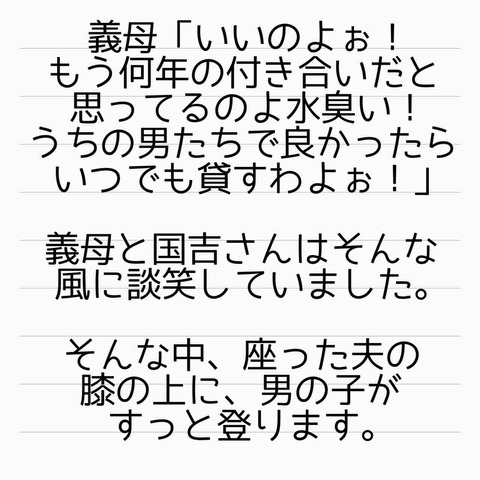 義母「いいのよぉ！
もう何年の付き合いだと
思ってるのよ水臭い！
うちの男たちで良かったら
いつでも貸すわよぉ！」
義母と国吉さんはそんな
風に談笑していました。
そんな中、座った夫の
膝の上に、男の子が
すっと登ります。